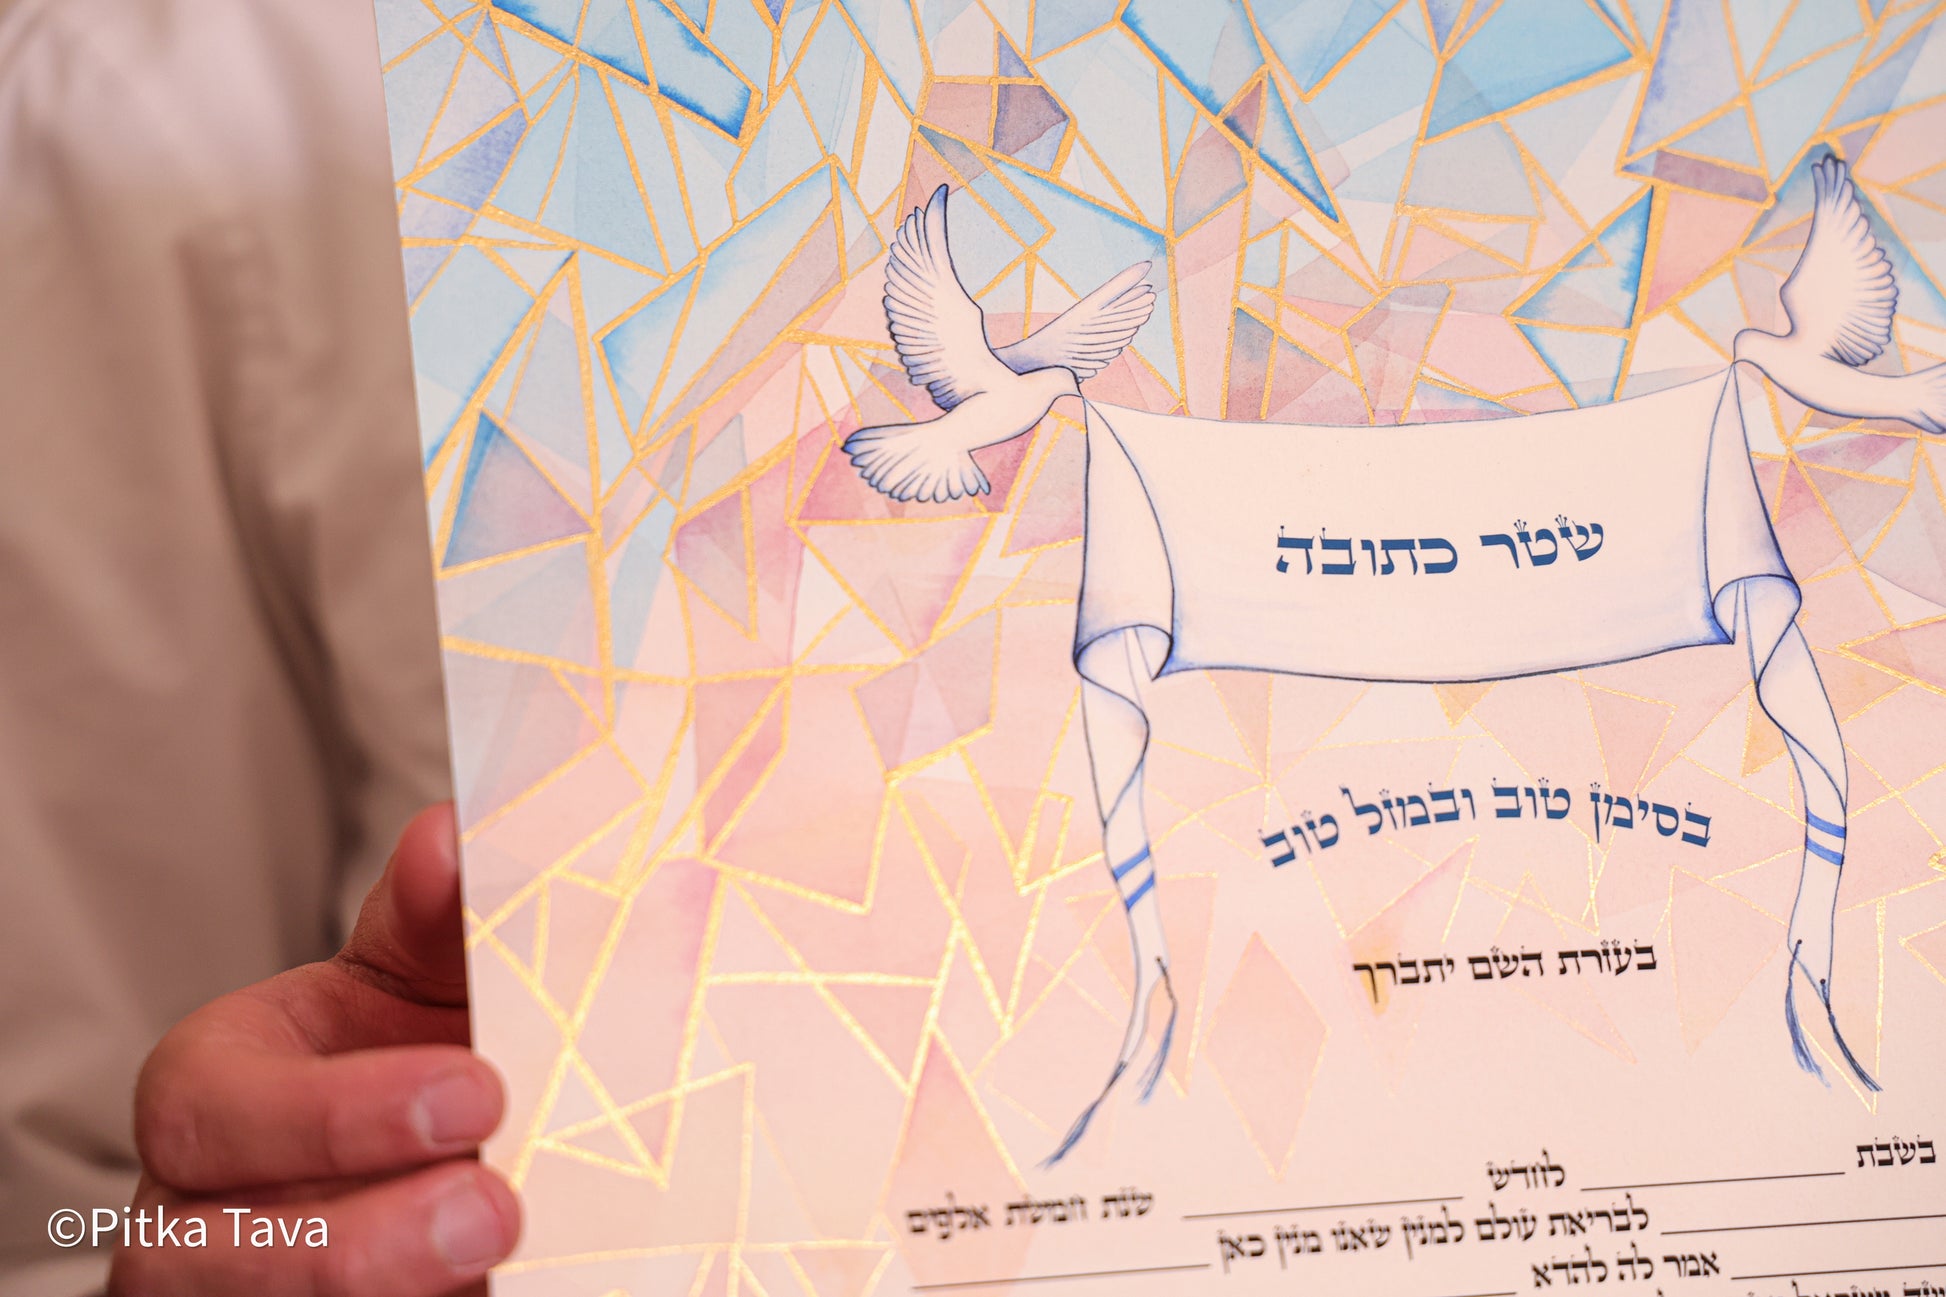 שטר כתובה
בסימן טוב ובמזל טוב
בעזרת השם יתברך
בשבת ____ לחדש ____ שנת חמשת אלפים
____ לבריאת עולם למנין שאנו מנין כאן ____
____ אמר לה להדא ____
©Pitka Tava